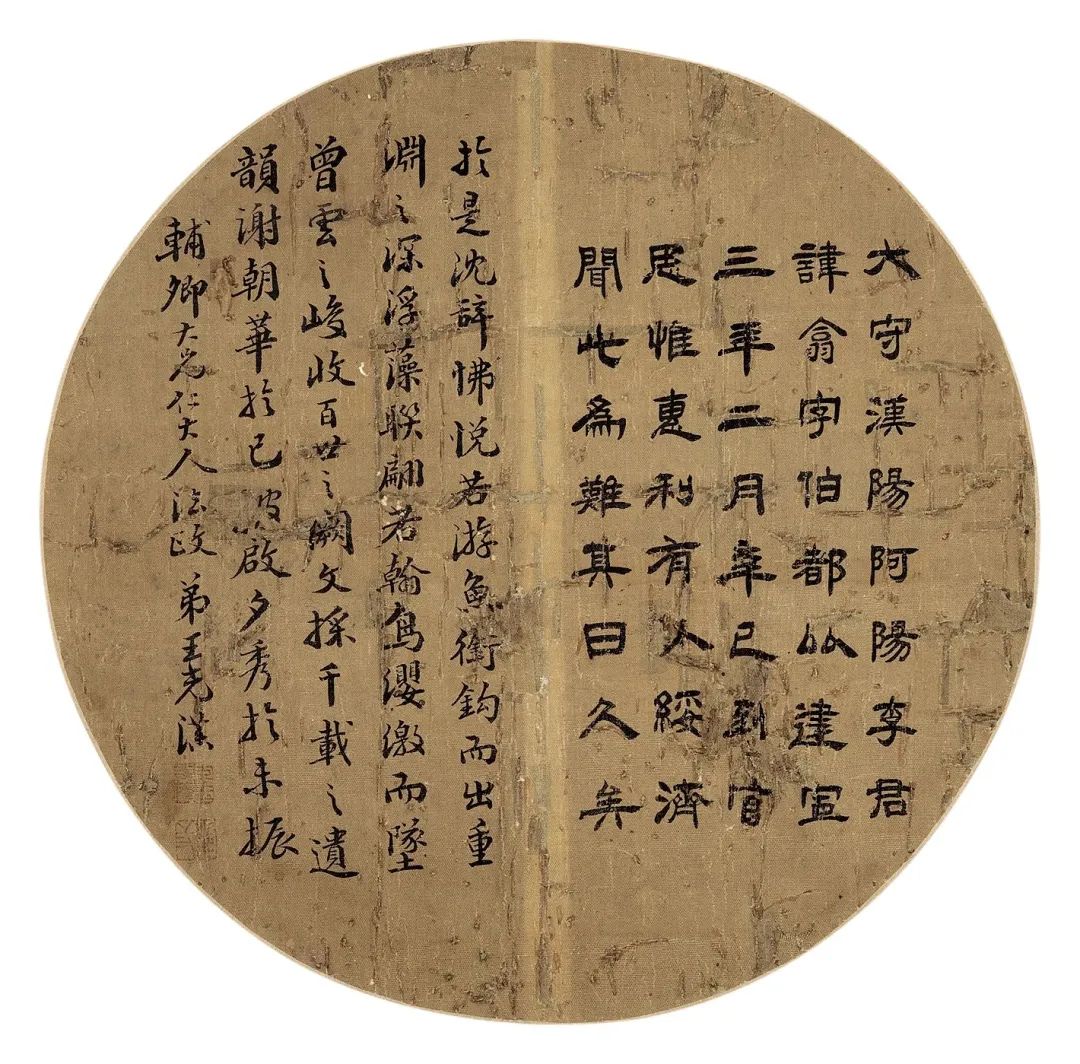 大守漢陽阿陽李君
諱翕字伯都以建寧
三年二月辛巳到官
思惟惠利有以綏濟
聞此為難其日久矣
於是沈辭怫悅若游魚銜鈎而出重
淵之深浮藻聯翩若翰鳥纓繳而墜
曾雲之峻收百世之闕文採千載之遺
韻謝朝華於已披啟夕秀於未振
輔卿大兄仁大人法政 弟王堯漢